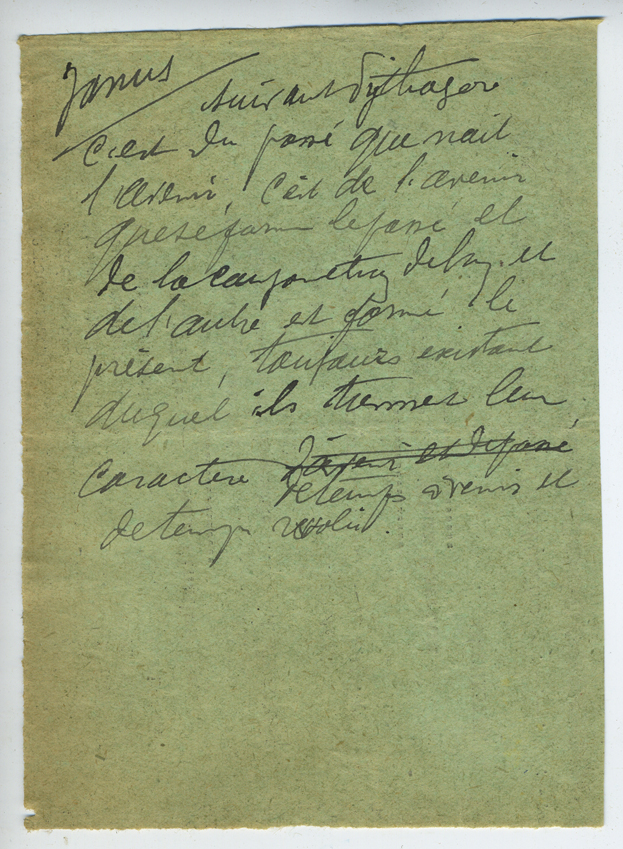 Janus
suivant Pythagore
c'est du passé que nait
l'avenir, c'est de l'avenir
que se forme le passé et
de la conjonction de l'un et
de l'autre est formé le
présent, toujours existant
duquel ils tiennent leur
caractère d'avenir et de passé
de temps à venir et
de temps révolu.